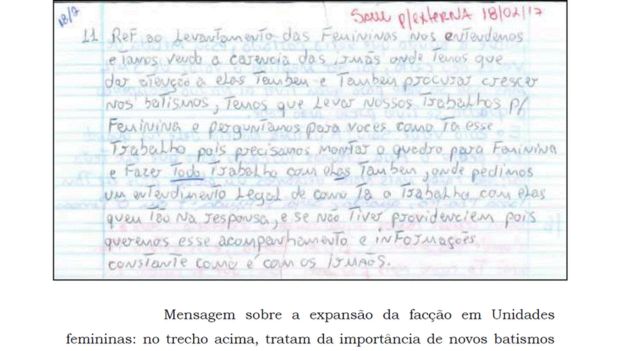 18/2
Saiu p/externa 18/02/17
11 Ref. ao Levantamento das Femininas nos entendemos
e tamos vendo a carencia das irmãs onde temos que
dar atenção a elas tamben e tamben procurar crescer
nos batismos, temos que levar nossos trabalhos p/
Feminina e perguntamos para voces como ta esse
trabalho pois precisamos montar o quadro para Feminina
e fazer todo trabalho com elas tamben, onde pedimos
um entendimento legal de como ta o trabalho com elas
quem tão na responsa, e se não tiver providenciem pois
queremos esse acompanhamento e informações
constante como é com os irmãos.
Mensagem sobre a expansão da facção em Unidades
femininas: no trecho acima, tratam da importância de novos batismos